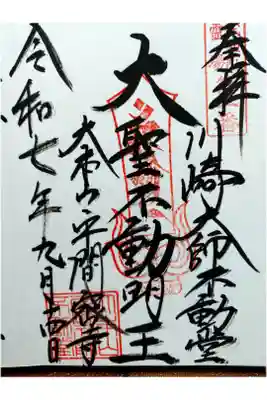 奉拝
川崎大師不動堂
大聖不動明王
大本山平間寺
令和七年九月十四日